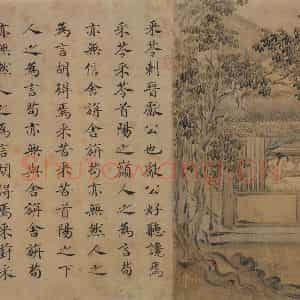 采苓刺晉獻公也獻公好聽讒焉
采苓采苓首陽之巔人之為言苟
亦無信舍旃舍旃苟亦無然人之
為言胡得焉采苦采苦首陽之下
人之為言苟亦無與舍旃舍旃苟
亦無然人之為言胡得焉采葑采